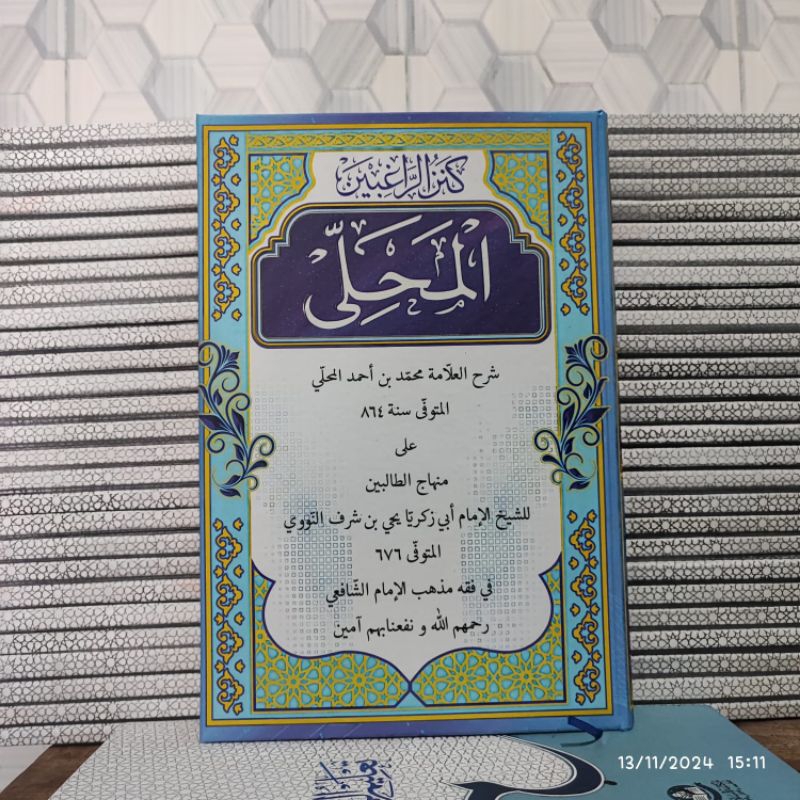 كنز الراغبين
المَحَلِّى
شرح العلّامة محمّد بن أحمد المحلّي
المتوفّى سنة ٨٦٤
على
منهاج الطالبين
للشيخ الإمام أبي زكريّا يحي بن شرف النّووي
المتوفّى ٦٧٦
في فقه مذهب الإمام الشّافعي
رحمهم الله و نفعنابهم آمين
13/11/2024 15:11